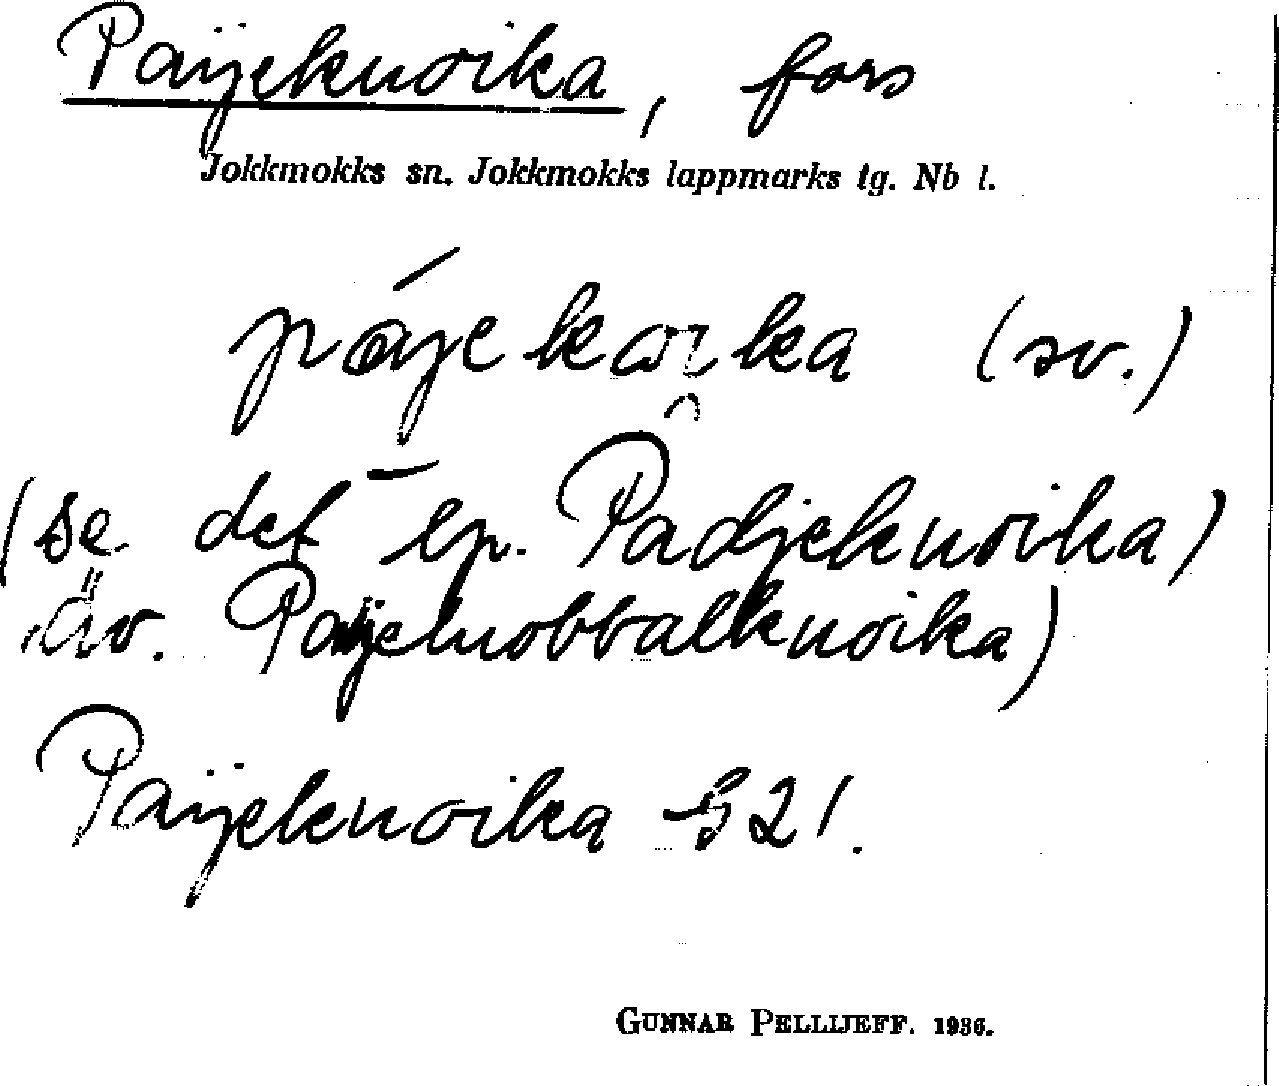 Paijekuoika, fors
Jokkmokks sn. Jokkmokks lappmarks tg. Nb l.
(sv.)
(se det lp. Padjekuoika)
äv. Paijeluobbalkuoika)
Paijekuoika § 21.
GUNNAR PELLIJEFF. 1936.